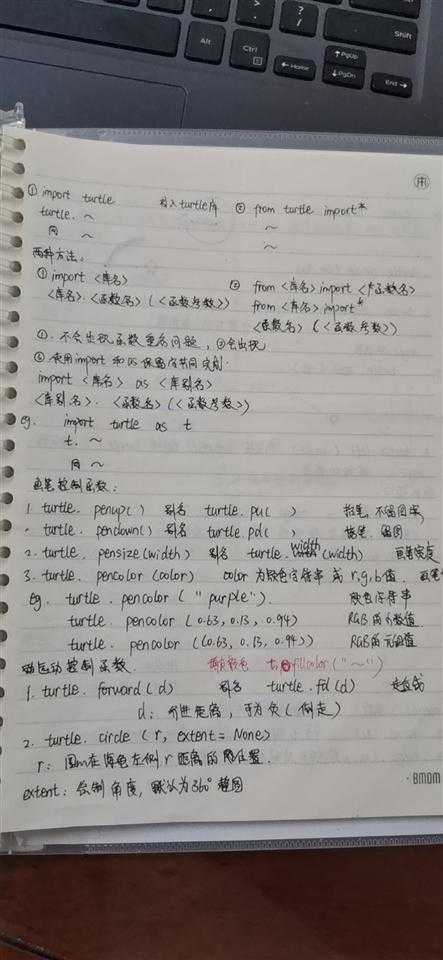 Shift
Alt
Ctrl
PgUp
Home
PgDn
End
① import turtle 导入turtle库 ② from turtle import*
turtle. ~ ~
同 ~ ~
两种方法。
① import <库名> ② from <库名> import <*函数名>
<库名>. <函数名> (<函数参数>) from <库名> import*
<函数名> (<函数参数>)
①. 不会出现函数重名问题, ②会出现
③ 使用import 和 as 保留字共同实现.
import <库名> as <库别名>
<库别名>. <函数名> (<函数参数>)
eg. import turtle as t
t. ~
同 ~
画笔控制函数:
1. turtle. penup( ) 别名 turtle. pu( ) 抬笔, 不留图
turtle. pendown( ) 别名 turtle. pd( ) 落笔. 留图
2. turtle. pensize (width) 别名 turtle. width (width) 画笔宽度
3. turtle. pencolor (color) color 为颜色字符串 或 r,g,b值. 画笔
Eg. turtle. pencolor ("purple"). 颜色字符串
turtle. pencolor (0.63, 0.13, 0.94) RGB的小数值
turtle. pencolor ((0.63, 0.13, 0.94)) RGB的元组值
运动控制函数 填充颜色 fillcolor ("~")
1. turtle. forward (d) 别名 turtle. fd (d) 走直线
d: 行进距离, 可为负 (倒走)
2. turtle. circle (r, extent = None)
r: 圆心在海龟左侧 r 距离的位置.
extent: 绘制角度, 默认为360° 整圆
· BMDM